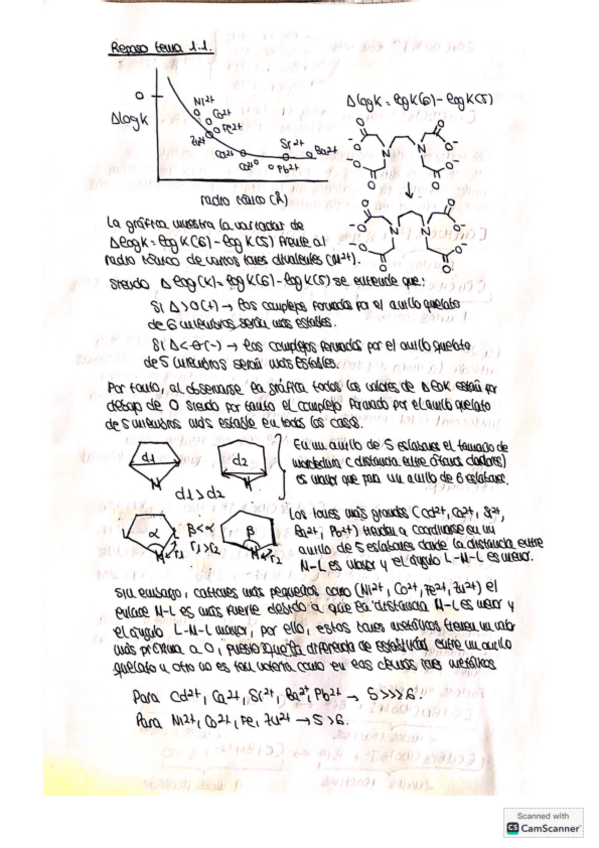 Repaso tema 1.1.
0
ΔlogK
Ni2+
Co2+
Fe2+
Zn2+
Cd2+
Ca2+
Sr2+
Pb2+
Ba2+
radio iónico (Å)
ΔlogK = logK(6) - logK(5)
La gráfica muestra la variación de
ΔlogK = log K(6) - log K(5) frente al
radio iónico de varios iones divalentes (M2+).
Siendo Δ log(K) = log K(6) - log K(5) se entiende que:
Si Δ>0 (+) → los complejos formados por el anillo quelato
de 6 miembros serán más estables.
Si Δ<0 (-) → los complejos formados por el anillo quelato
de 5 miembros serán más estables.
Por tanto, al observarse la gráfica todos los valores de Δ están por
debajo de 0 siendo por tanto el complejo formado por el anillo quelato
de 5 miembros más estable en todos los casos.
d1
M
d2
M
d1>d2
En un anillo de 5 eslabones el tamaño de
mordedura (distancia entre átomos dadores)
es mayor que para un anillo de 6 eslabones.
L
α
L
M
r1
β<α
r1>r2
β
M
r2
Los iones más grandes (Cd2+, Ca2+, Sr2+,
Ba2+, Pb2+) tienden a coordinarse en un
anillo de 5 eslabones donde la distancia entre
M-L es mayor y el ángulo L-M-L es menor.
Sin embargo, cationes más pequeños como (Ni2+, Co2+, Fe2+, Zn2+) el
enlace M-L es más fuerte debido a que la distancia M-L es menor y
el ángulo L-M-L mayor, por ello, estos iones metálicos tienen un valor
más próximo a 0, puesto que la diferencia de estabilidad entre un anillo
quelato u otro no es tan notoria como en los demás iones metálicos
Para Cd2+, Ca2+, Sr2+, Ba2+, Pb2+ → 5>>>6.
Para Ni2+, Co2+, Fe, Zn2+ → 5>6.
Scanned with
CS CamScanner